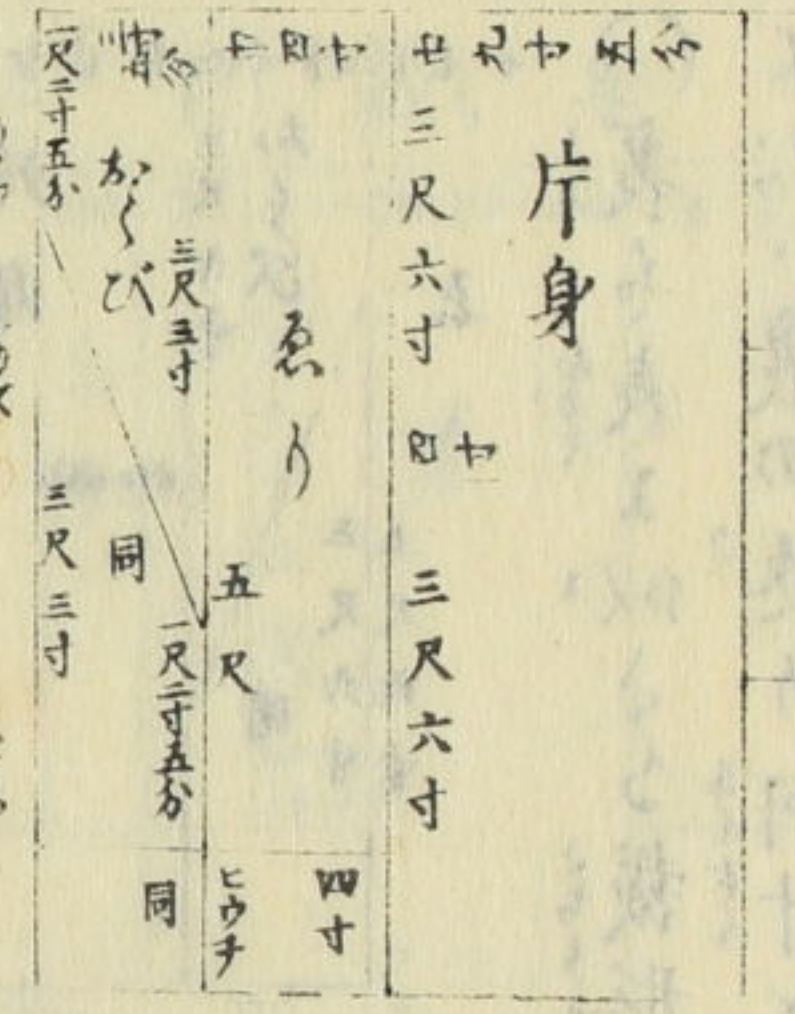 九寸五分
片身
三尺六寸
三尺六寸
四寸
ゑり
五尺
四寸
ヒウチ
おくび
三尺三寸
同
一尺二寸五分
同
一尺二寸五分
三尺三寸